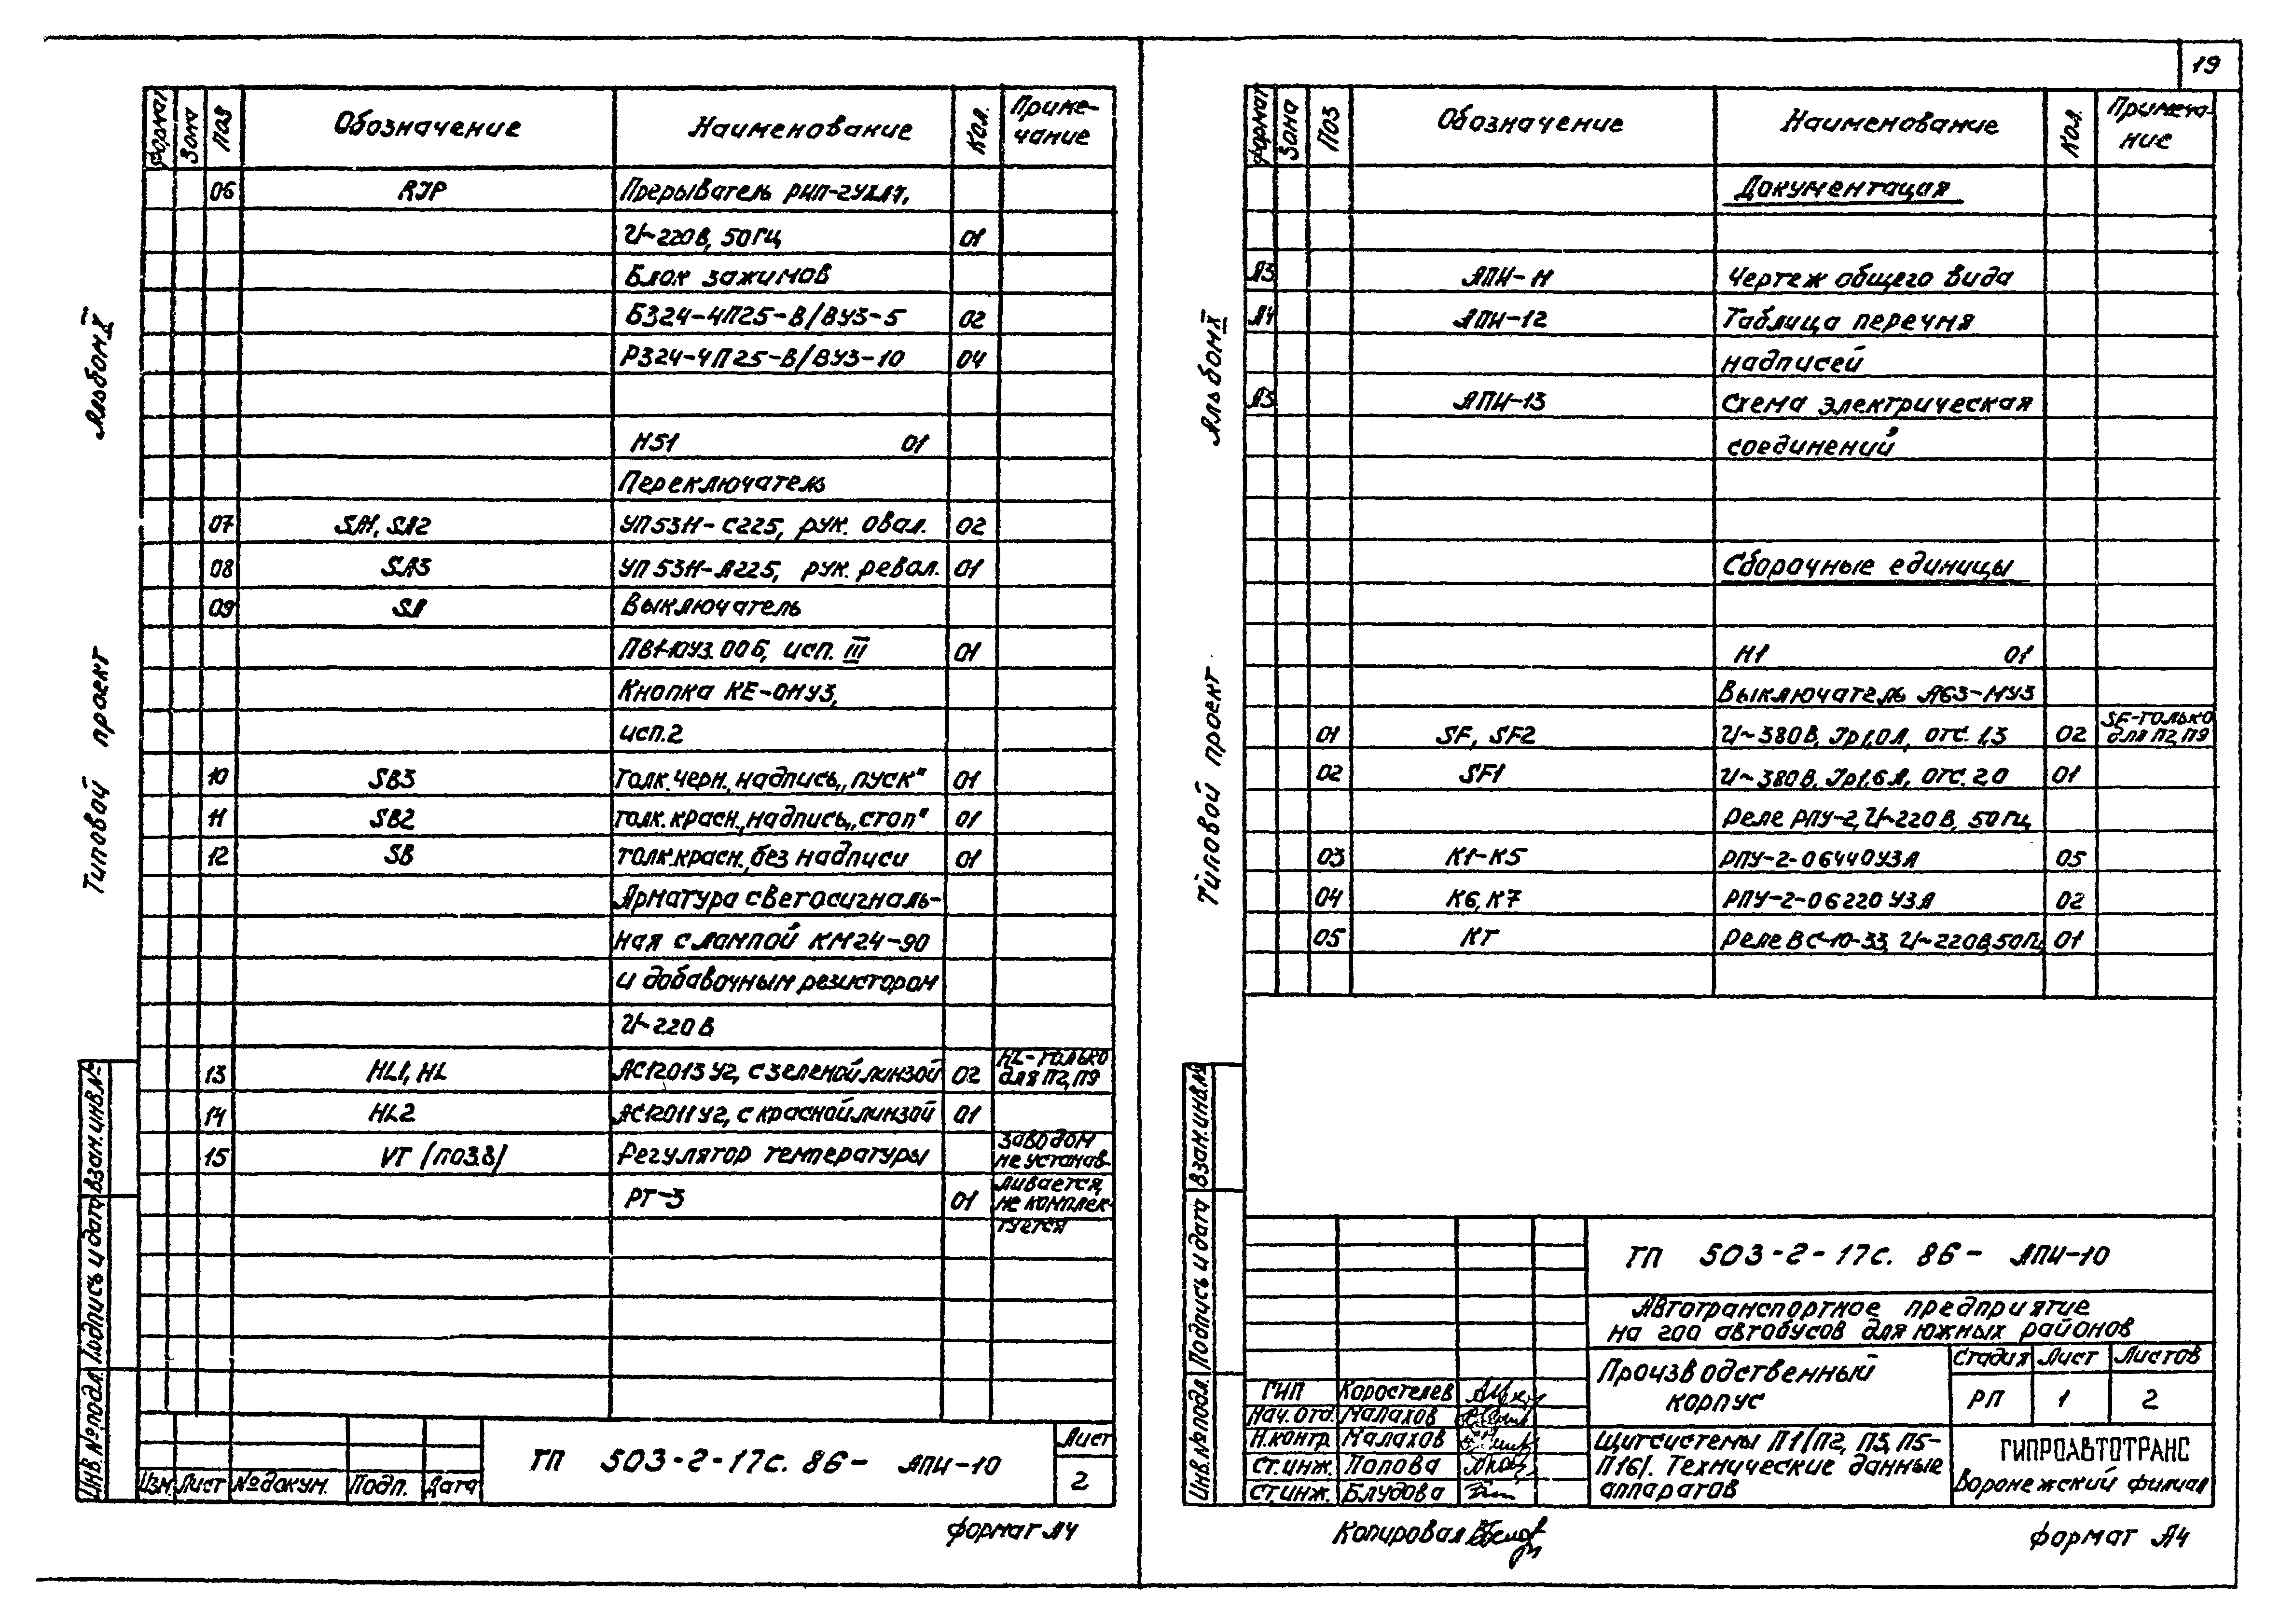 19
Формат Зона Поз Обозначение Наименование Кол. Приме-
чание
06 RJP Прерыватель РИП-2УХЛ4,
U~220В, 50Гц 01
Блок зажимов
БЗ24-4П25-В/ВУ3-5 02
РЗ24-4П25-В/ВУ3-10 04
Н51 01
Переключатель
07 SA1, SA2 УП5311-С225, рук. овал. 02
08 SA3 УП5311-А225, рук. револ. 01
09 SA Выключатель
ПВ1-10У3.00Б, исп. III 01
Кнопка КЕ-011У3,
исп.2
10 SB3 толк. черн., надпись „пуск" 01
11 SB2 толк. красн., надпись „стоп" 01
12 SB толк. красн., без надписи 01
Арматура светосигналь-
ная с лампой КМ24-90
и добавочным резистором
U~220В
13 HL1, HL АС12013У2, с зеленой линзой 02 HL-только
для П2, П9
14 HL2 АС12011У2, с красной линзой 01
15 VT /поз.8/ Регулятор температуры заводом
не устанав-
РТ-3 01 ливается,
не комплек-
туется
Альбом X
Типовой проект
Взам. инв. №
Подпись и дата
Инв. № подл.
Изм. Лист № докум. Подп. Дата
ТП 503-2-17с. 86- АПИ-10
Лист
2
Формат А4
Формат Зона Поз Обозначение Наименование Кол. Примеча-
ние
Документация
А3 АПИ-11 Чертеж общего вида
А4 АПИ-12 Таблица перечня
надписей
А3 АПИ-13 Схема электрическая
соединений
Сборочные единицы
Н1 01
Выключатель А63-МУ3
01 SF, SF2 U~380В, Iр1,0А, отс. 1,3 02 SF-только
для П2, П9
02 SF1 U~380В, Iр1,6А, отс. 2,0 01
Реле РПУ-2, U~220В, 50Гц
03 К1-К5 РПУ-2-06440У3А 05
04 К6, К7 РПУ-2-06220У3А 02
05 КТ Реле ВС-10-33, U~220В, 50Гц 01
Альбом X
Типовой проект
Взам. инв. №
Подпись и дата
Инв. № подл.
ТП 503-2-17с. 86- АПИ-10
Автотранспортное предприятие
на 200 автобусов для южных районов
Производственный
корпус
Стадия Лист Листов
РП 1 2
ГИП Коростелев
Нач. отд. Малахов
Н.контр. Малахов
Ст.инж. Попова
Ст.инж. Блудова
Щит системы П1/П2, П3, П5-
П16/. Технические данные
аппаратов
ГИПРОАВТОТРАНС
Воронежский филиал
Копировал
Формат А4